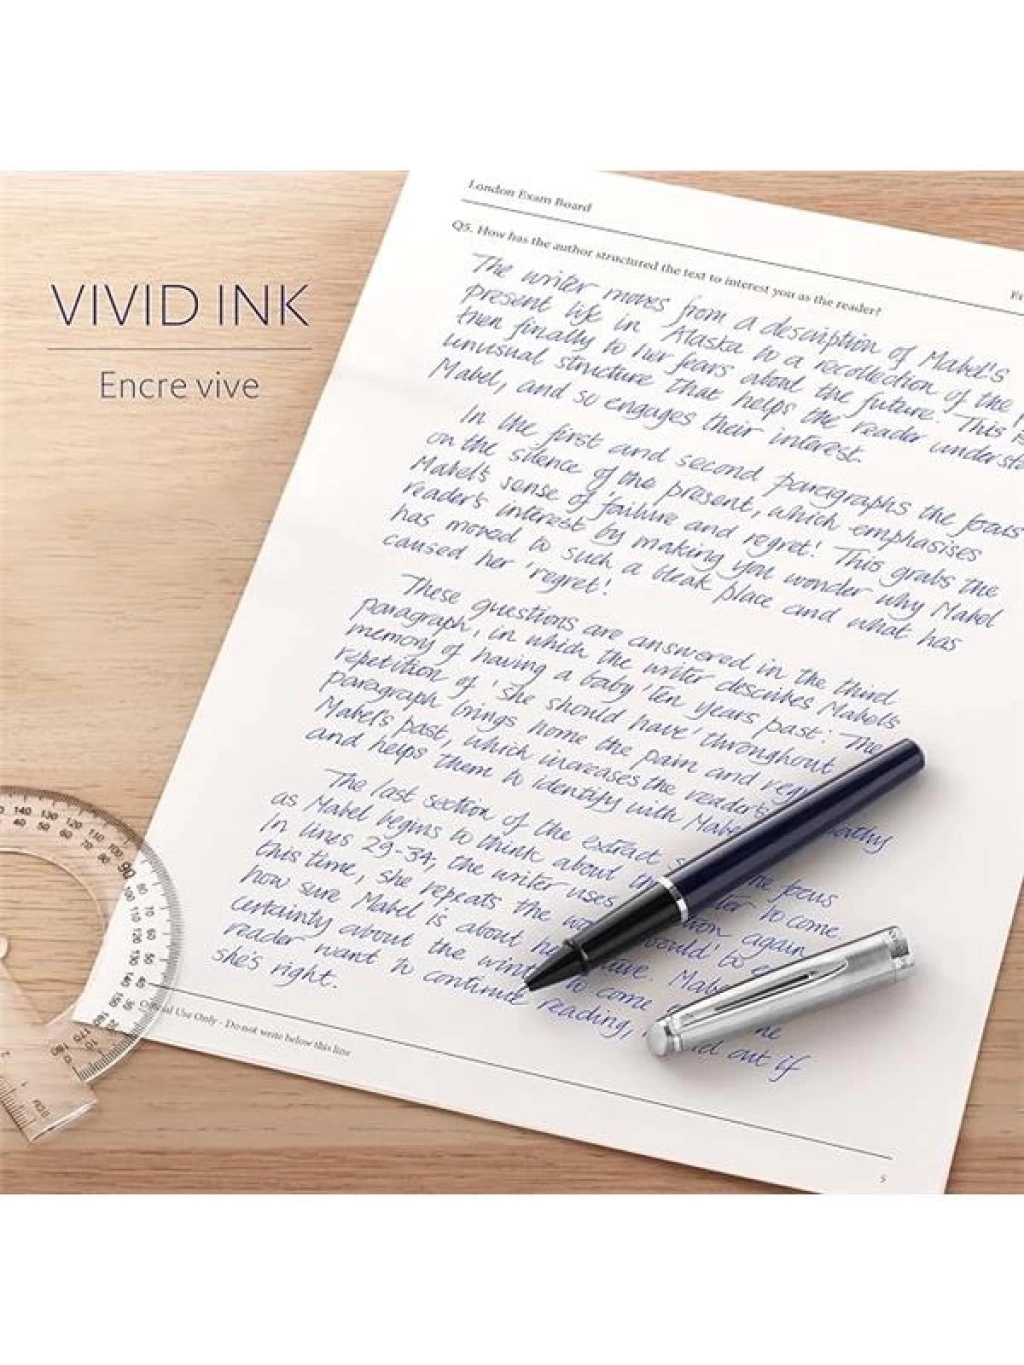 VIVID INK
Encre vive
London Exam Board
Q5. How has the author structured the text to interest you as the reader?
The writer moves from a description of Mabel's
present life in Alaska to a recollection of the
then finally to her fears about the future. This is
unusual structure that helps the reader
Mabel, and so engages their interest.
In the first and second paragraphs the focus
on the silence of the present, which emphasises
Mabel's sense of 'failure and regret'. This grabs the
reader's interest by making you wonder why Mabel
has moved to such a bleak place and what has
caused her 'regret'.
These questions are answered in the third
paragraph, in which the writer describes Mabel's
memory of having a baby 'ten years past'. The
repetition of 'she should have' throughout
paragraph brings home the pain and
Mabel's past, which increases the reader's
and helps them to identify with
The last section of the extract
as Mabel begins to think about focus
In lines 29-34, the writer uses to come.
this time, she repeats the again
how sure Mabel is about would' to
certainty about the
reader want to continue reading, to come
she's right. out if
Official Use Only - Do not write below this line
5
140 130 120 110 100 90 80 70 60 50 40